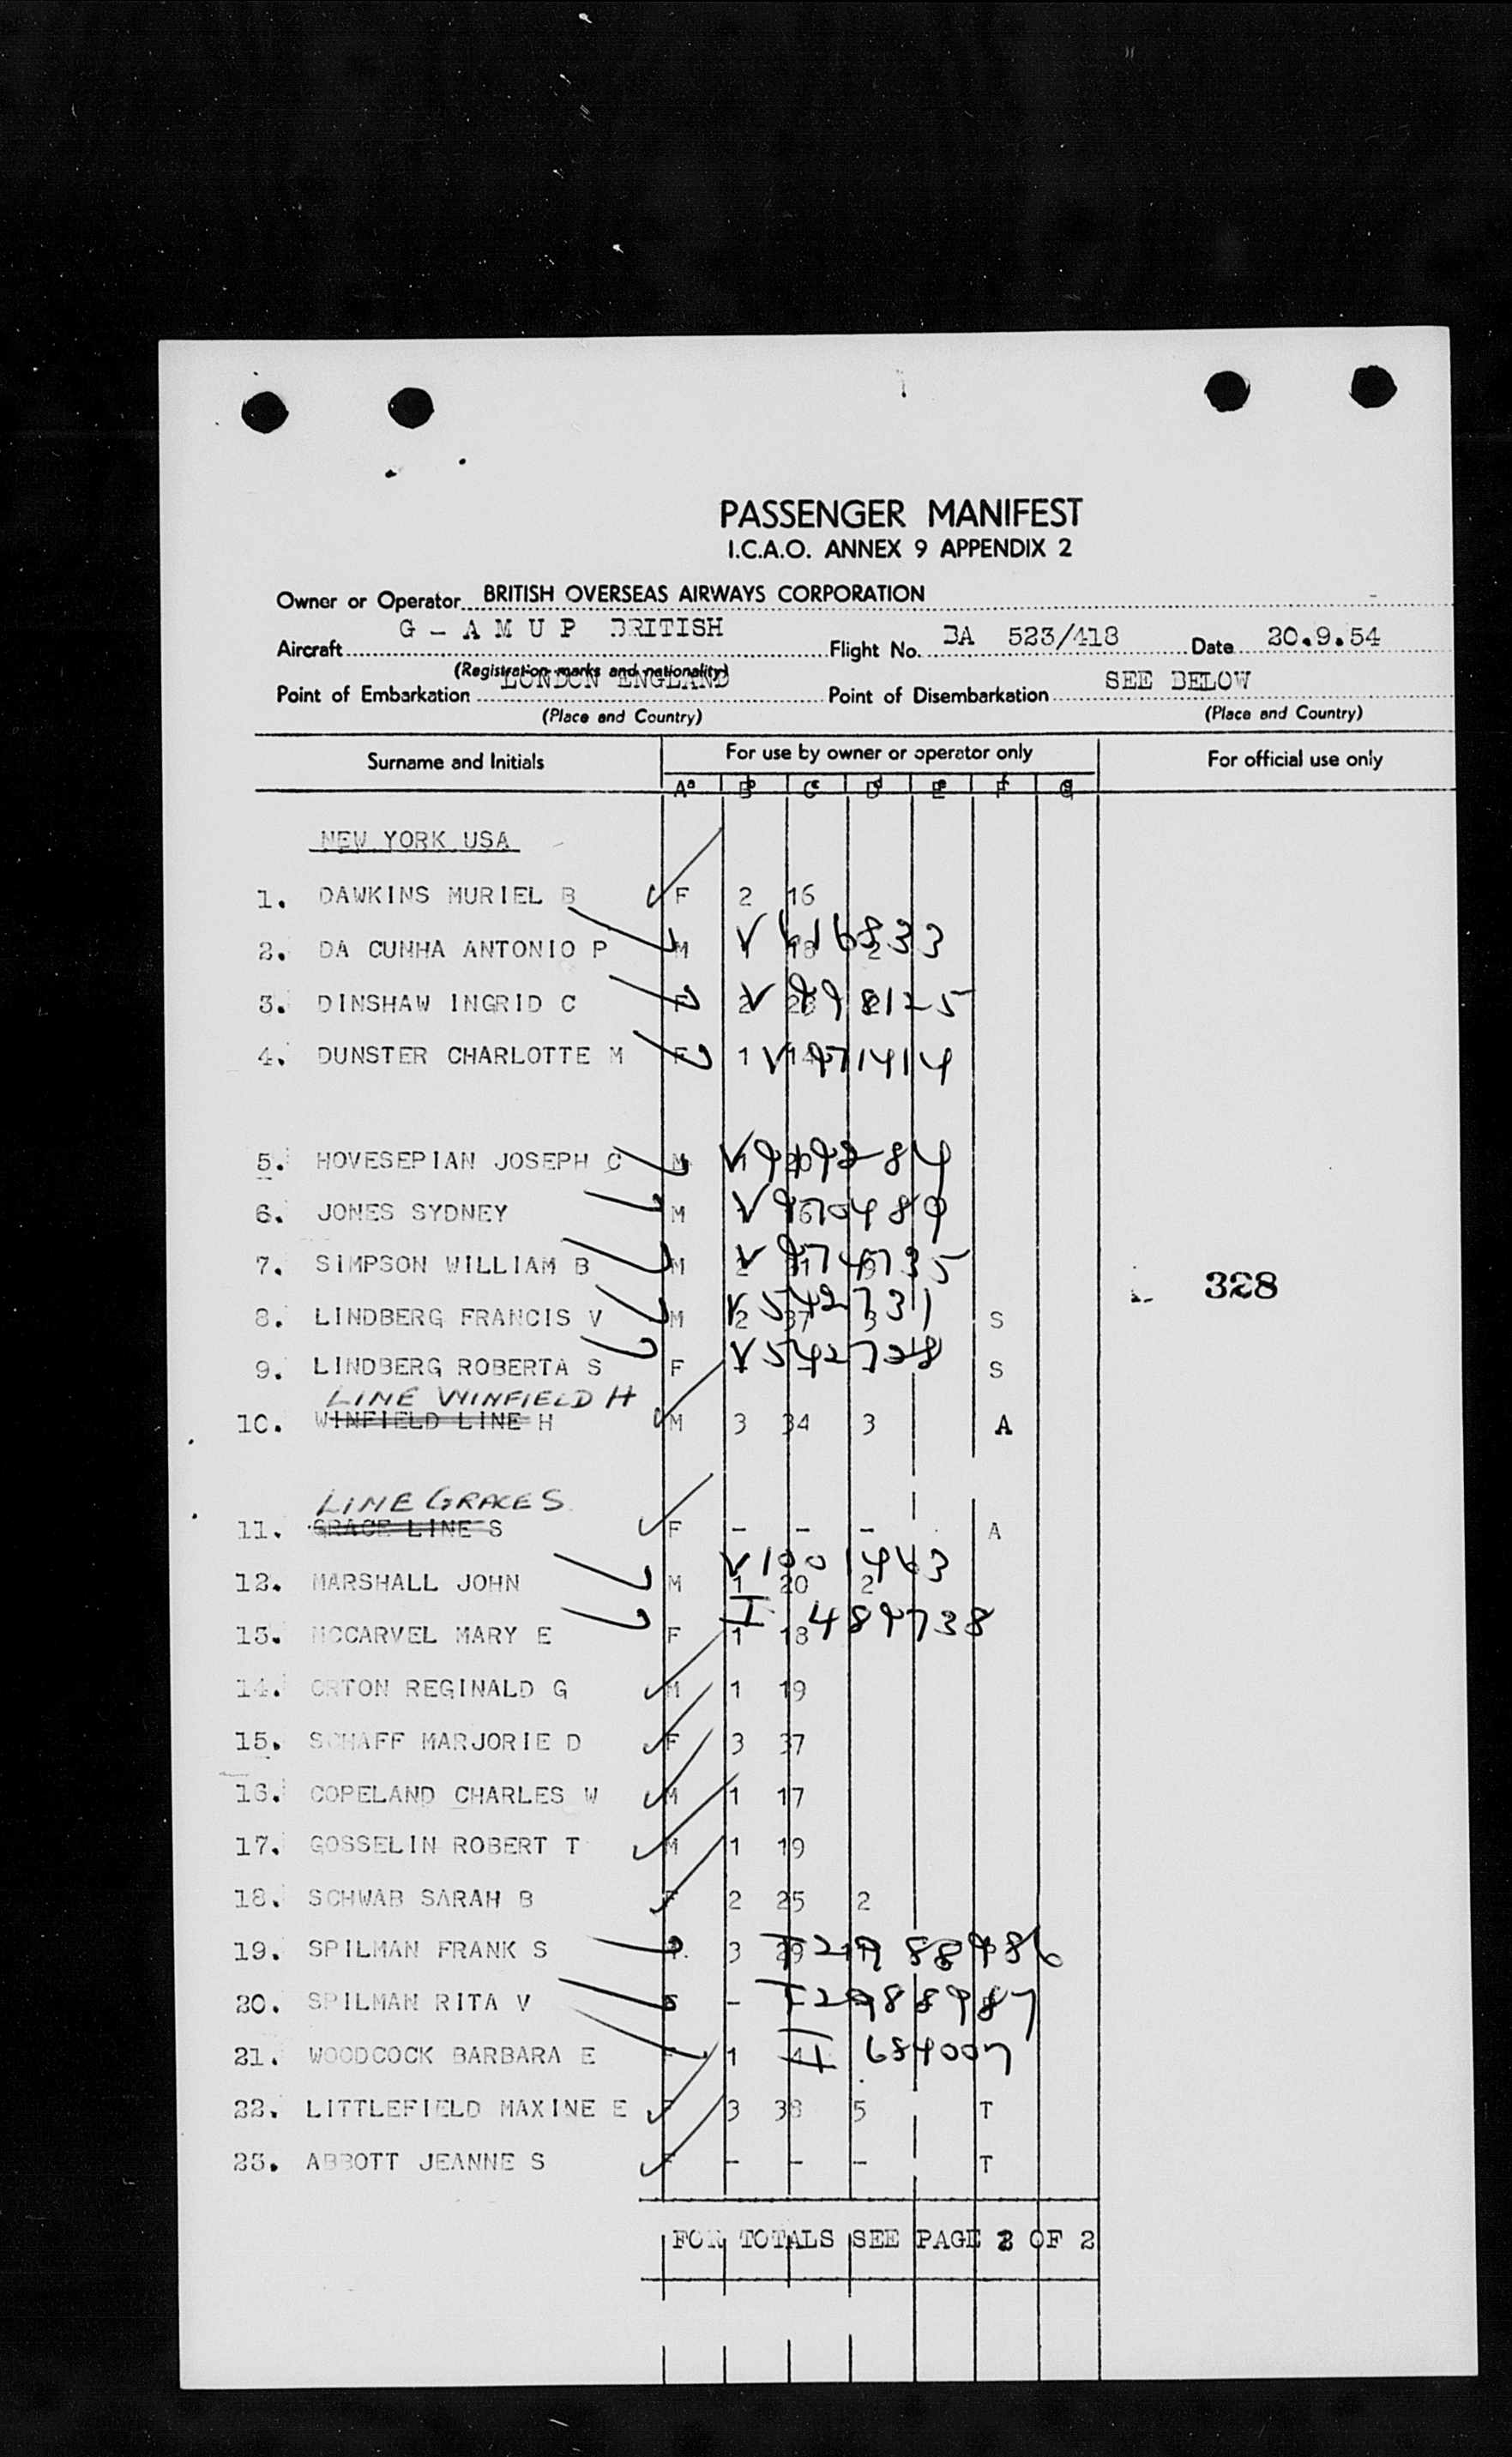 PASSENGER MANIFEST
I.C.A.O. ANNEX 9 APPENDIX 2
Owner or Operator BRITISH OVERSEAS AIRWAYS CORPORATION
Aircraft G - A M U P BRITISH Flight No. BA 523/418 Date 20.9.54
(Registration marks and nationality)
Point of Embarkation LONDON ENGLAND Point of Disembarkation SEE BELOW
(Place and Country) (Place and Country)
Surname and Initials For use by owner or operator only For official use only
A B C D E F G
NEW YORK USA
1. DAWKINS MURIEL B F 2 16
2. DA CUNHA ANTONIO P M V616833
3. DINSHAW INGRID C F 2 V998125
4. DUNSTER CHARLOTTE M F 1 V971414
5. HOVESEPIAN JOSEPH C M
6. JONES SYDNEY M V970489
7. SIMPSON WILLIAM B M V974735
328
8. LINDBERG FRANCIS V M 2 37 3 V542731 S
9. LINDBERG ROBERTA S F V542728 S
LINE WINFIELD H
10. WINFIELD LINE H M 3 34 3 A
LINE GRACE S
11. GRACE LINE S F - - - A
12. MARSHALL JOHN M 1 20 2 V1001443
13. MCCARVEL MARY E F 1 18 I 489738
14. ORTON REGINALD G M 1 19
15. SCHAFF MARJORIE D F 3 37
16. COPELAND CHARLES W M 1 17
17. GOSSELIN ROBERT T M 1 19
18. SCHWAB SARAH B F 2 25 2
19. SPILMAN FRANK S 3 29
20. SPILMAN RITA V - I2988987
21. WOODCOCK BARBARA E F 1 I 684007
22. LITTLEFIELD MAXINE E F 3 38 5 T
23. ABBOTT JEANNE S F - - - T
FOR TOTALS SEE PAGE 2 OF 2